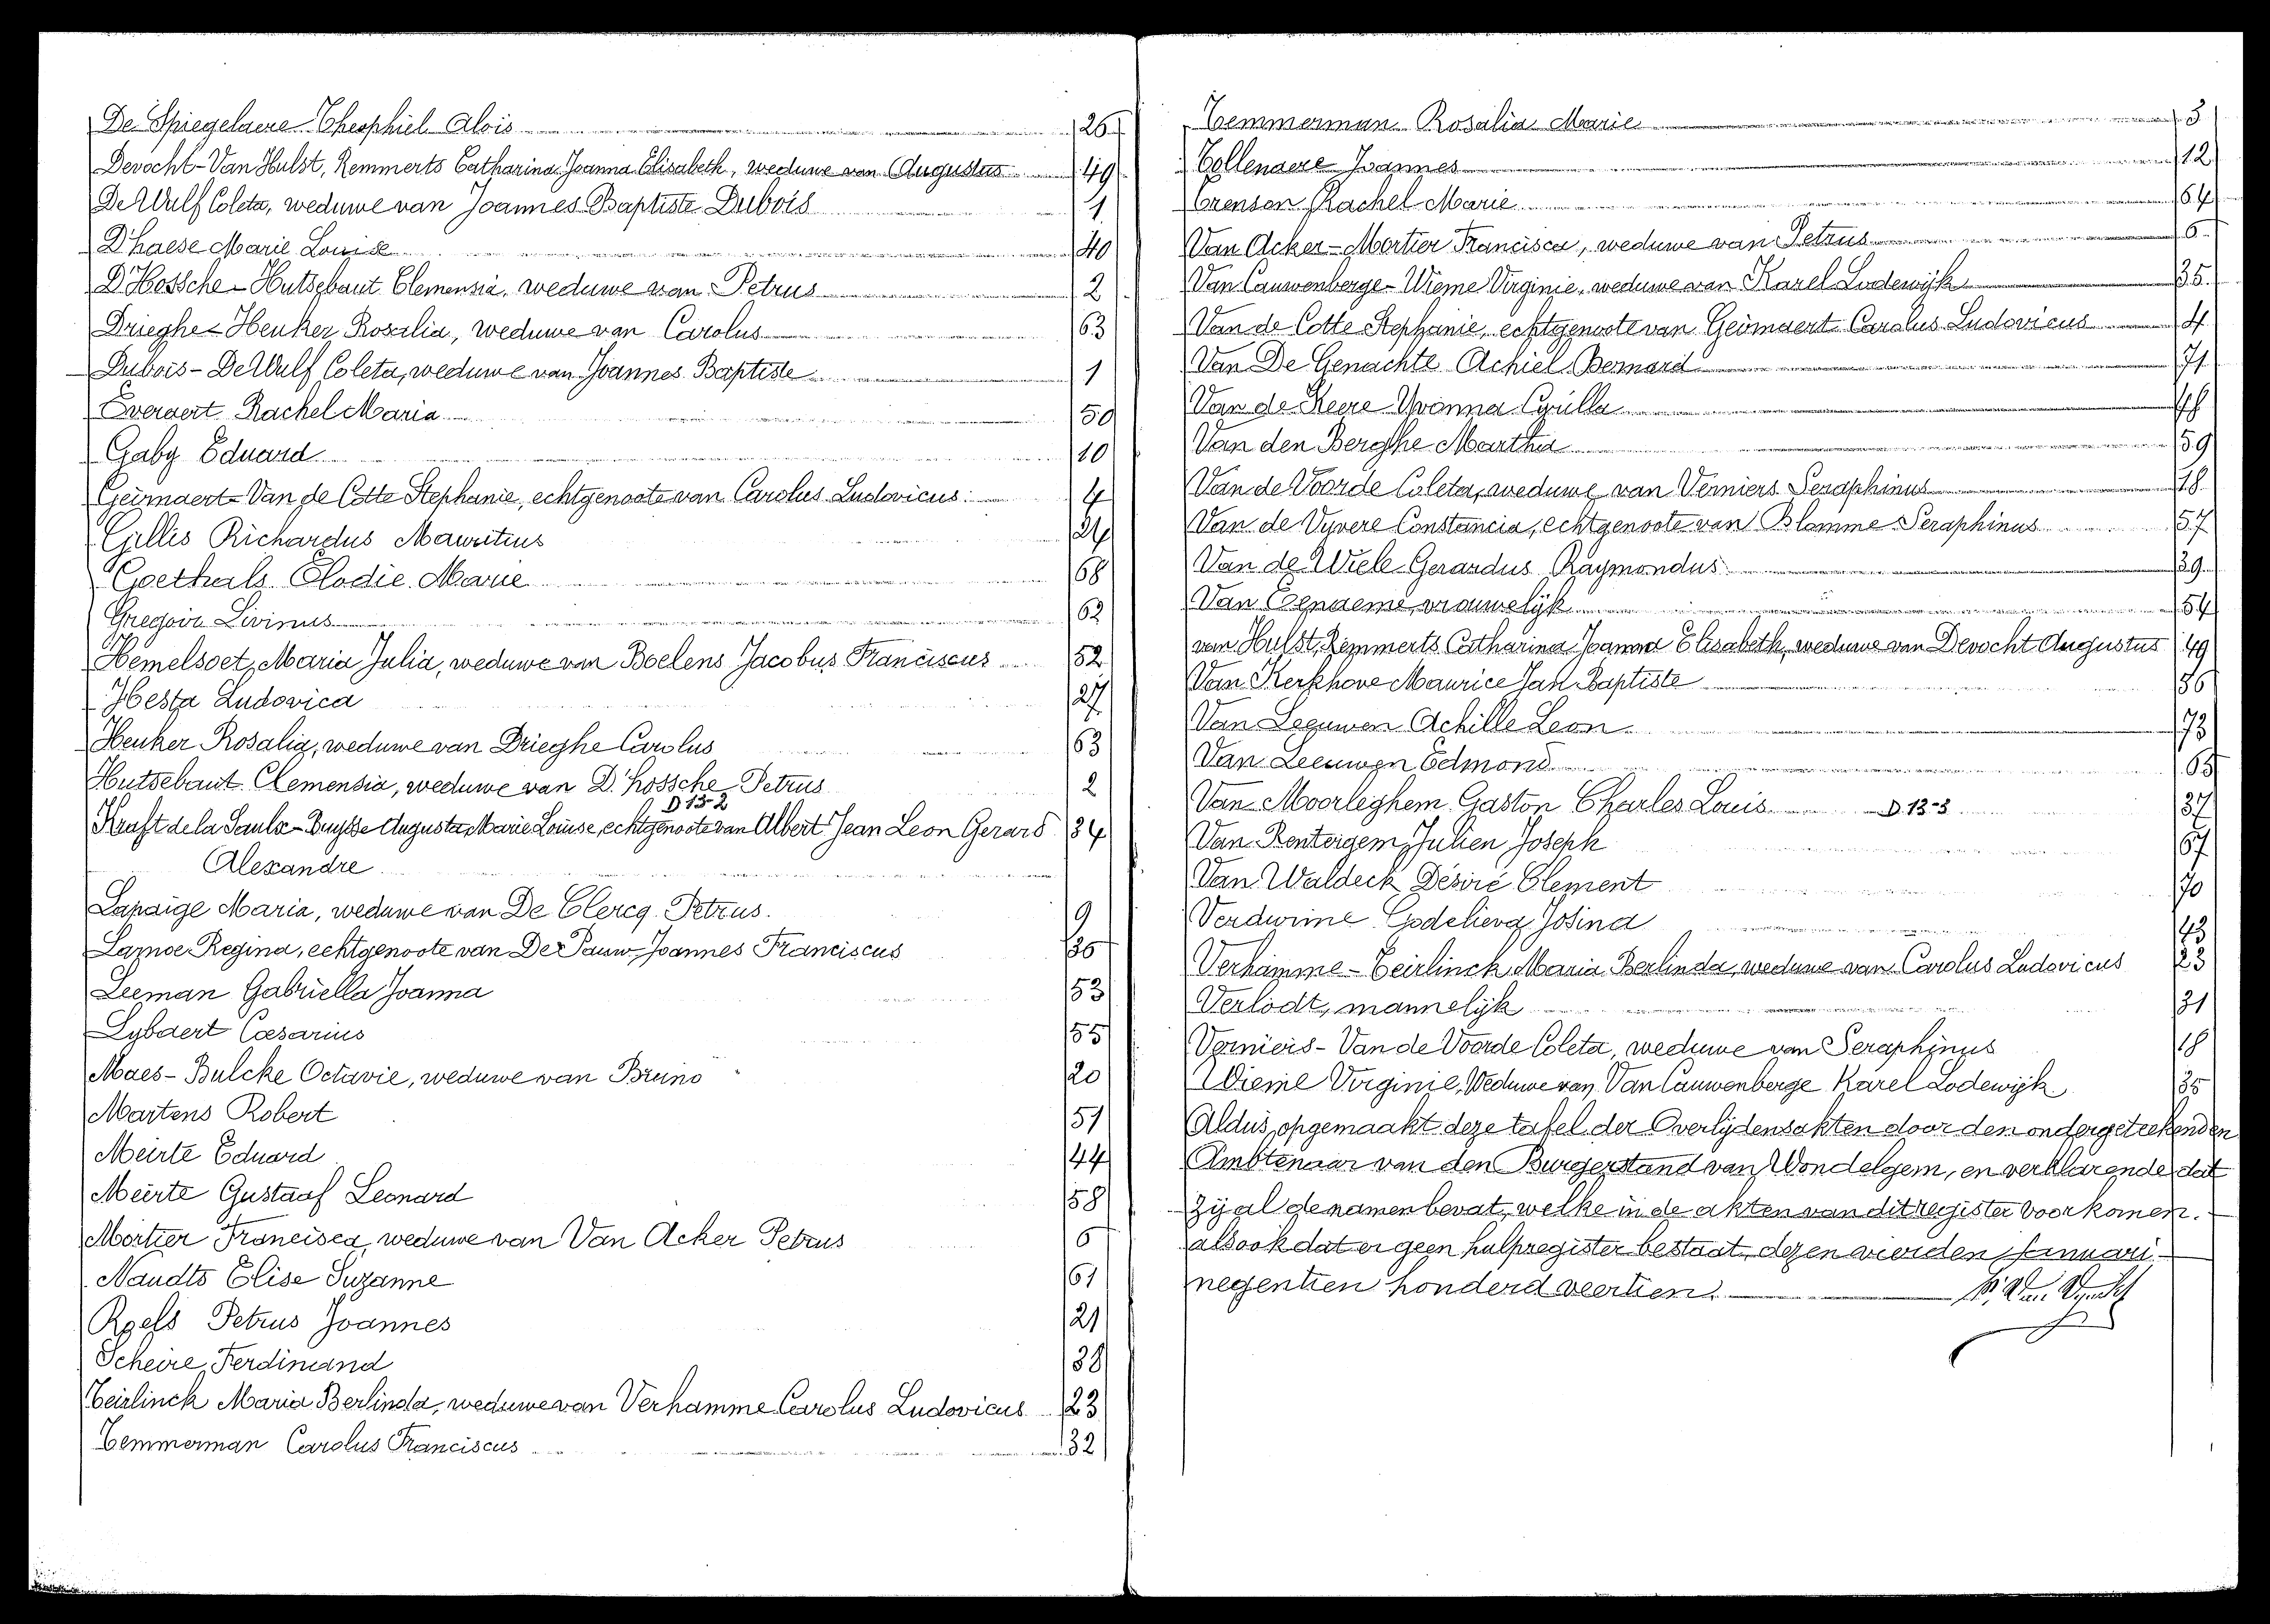 De Spiegelaere Theophiel Alois 26
Devocht-Van Hulst, Remmerts Catharina Joanna Elisabeth, weduwe van Augustus 49
De Wulf Coleta, weduwe van Joannes Baptiste Dubois 1
D'haese Marie Louise 40
D'Hossche-Hutsebaut Clemensia, weduwe van Petrus 2
Drieghe-Heuker Rosalia, weduwe van Carolus 63
Dubois-De Wulf Coleta, weduwe van Joannes Baptiste 1
Everaert Rachel Maria 50
Gaby Eduard 10
Geirnaert-Van de Cotte Stephanie, echtgenoote van Carolus Ludovicus. 4
Gillis Richardus Mauritius 24
Goethals Elodie Marie 68
Gregoir Livinus 62
Hemelsoet, Maria Julia, weduwe van Boelens Jacobus Franciscus 52
Hesta Ludovica 27
Heuker Rosalia, weduwe van Drieghe Carolus 63
Hutsebaut Clemensia, weduwe van D'hossche Petrus 2
D 13-2
Kraft de la Saulx-Buysse Augusta Marie Louise, echtgenoote van Albert Jean Leon Gerard 34
Alexandre
Lapaige Maria, weduwe van De Clercq Petrus. 9
Larnoe Regina, echtgenoote van De Pauw Joannes Franciscus 36
Leeman Gabriella Joanna 53
Lybaert Cæsarius 55
Maes-Bulcke Octavie, weduwe van Bruno 20
Martens Robert 51
Meirte Eduard 44
Meirte Gustaaf Leonard 58
Mortier Francisca, weduwe van Van Acker Petrus 6
Naudts Elise Suzanne 61
Roels Petrus Joannes 21
Scheire Ferdinand 38
Teirlinck Maria Berlinda, weduwe van Verhamme Carolus Ludovicus 23
Temmerman Carolus Franciscus 32
Temmerman Rosalia Marie 3
Tollenaere Joannes 12
Trenson Rachel Marie 64
Van Acker-Mortier Francisca, weduwe van Petrus 6
Van Cauwenberge-Wieme Virginie, weduwe van Karel Lodewijk 35
Van de Cotte Stephanie, echtgenoote van Geirnaert Carolus Ludovicus 4
Van De Genachte Achiel Bernard 71
Van de Keere Yvonna Cyrilla
Van den Berghe Martha 59
Van de Voorde Coleta, weduwe van Verniers Seraphinus 18
Van de Vyvere Constancia, echtgenoote van Blomme Seraphinus 57
Van de Wiele Gerardus Raymondus 39
Van Eenaeme, vrouwelijk 54
van Hulst, Remmerts Catharina Joanna Elisabeth, weduwe van Devocht Augustus 49
Van Kerkhove Maurice Jan Baptiste 56
Van Leeuwen Achille Leon 73
Van Leeuwen Edmond 65
Van Moorleghem Gaston Charles Louis D 13-3 37
Van Rentergem, Julien Joseph 67
Van Waldeck Désiré Clement 70
Verdurme Godelieva Josina 43
Verhamme-Teirlinck Maria Berlinda, weduwe van Carolus Ludovicus 23
Verlodt, mannelijk 31
Verniers-Van de Voorde Coleta, weduwe van Seraphinus 18
Wieme Virginie, Weduwe van Van Cauwenberge Karel Lodewijk 35
Aldus opgemaakt deze tafel der Overlijdensakten door den ondergeteekenden
Ambtenaar van den Burgerstand van Wondelgem, en verklarende dat
zij al de namen bevat, welke in de akten van dit register voorkomen.
alsook dat er geen hulpregister bestaat, dezen vierden Januari
negentien honderd veertien.